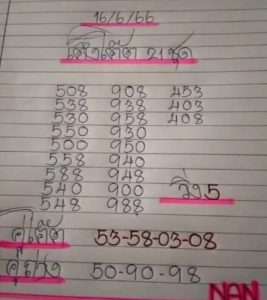 16/6/66
21 ชุด
508 908 453
538 938 403
530 958 408
550 930
500 950
558 940
588 948
540 900
548 988
วิ่ง 5
คู่เด็ด 53-58-03-08
50-90-98
NAN